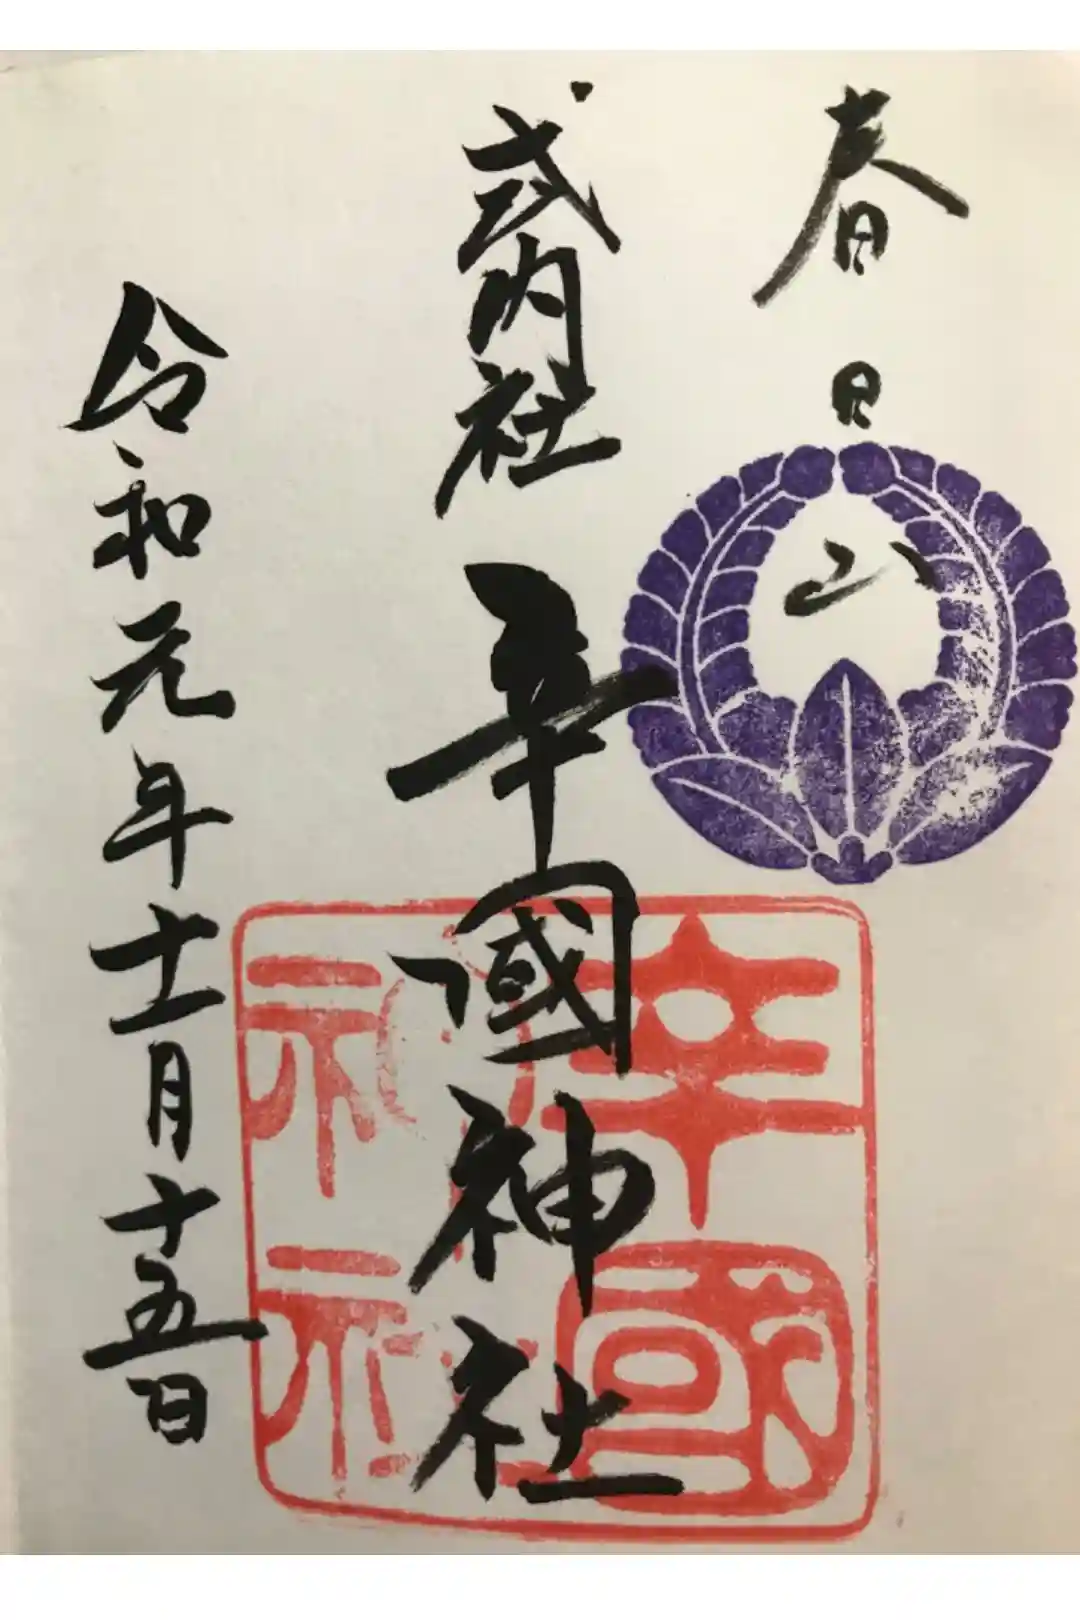 春日山
式内社 辛國神社
令和元年十一月十五日
辛國
神社